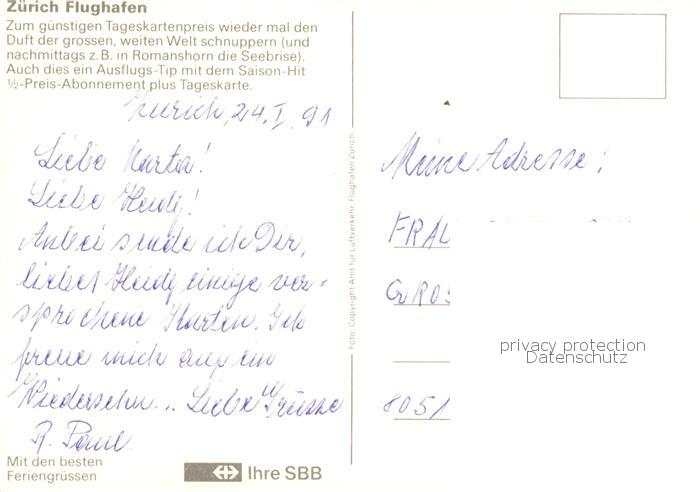 Zürich Flughafen
Zum günstigen Tageskartenpreis wieder mal den
Duft der grossen, weiten Welt schnuppern (und
nachmittags z.B. in Romanshorn die Seebrise).
Auch dies ein Ausflugs-Tip mit dem Saison-Hit
½-Preis-Abonnement plus Tageskarte.
Zürich, 24. I. 91
Liebe Marta!
Liebe Heidy!
Anbei sende ich Dir,
liebes Heidy einige ver-
sprochene Karten. Ich
freue mich auf ein
Wiedersehn... Liebe Grüsse
R.
Mit den besten
Feriengrüssen
Ihre SBB
Foto: Copyright Amt für Luftverkehr, Flughafen Zürich
Meine Adresse:
FRAU
GROS
privacy protection
Datenschutz
8051